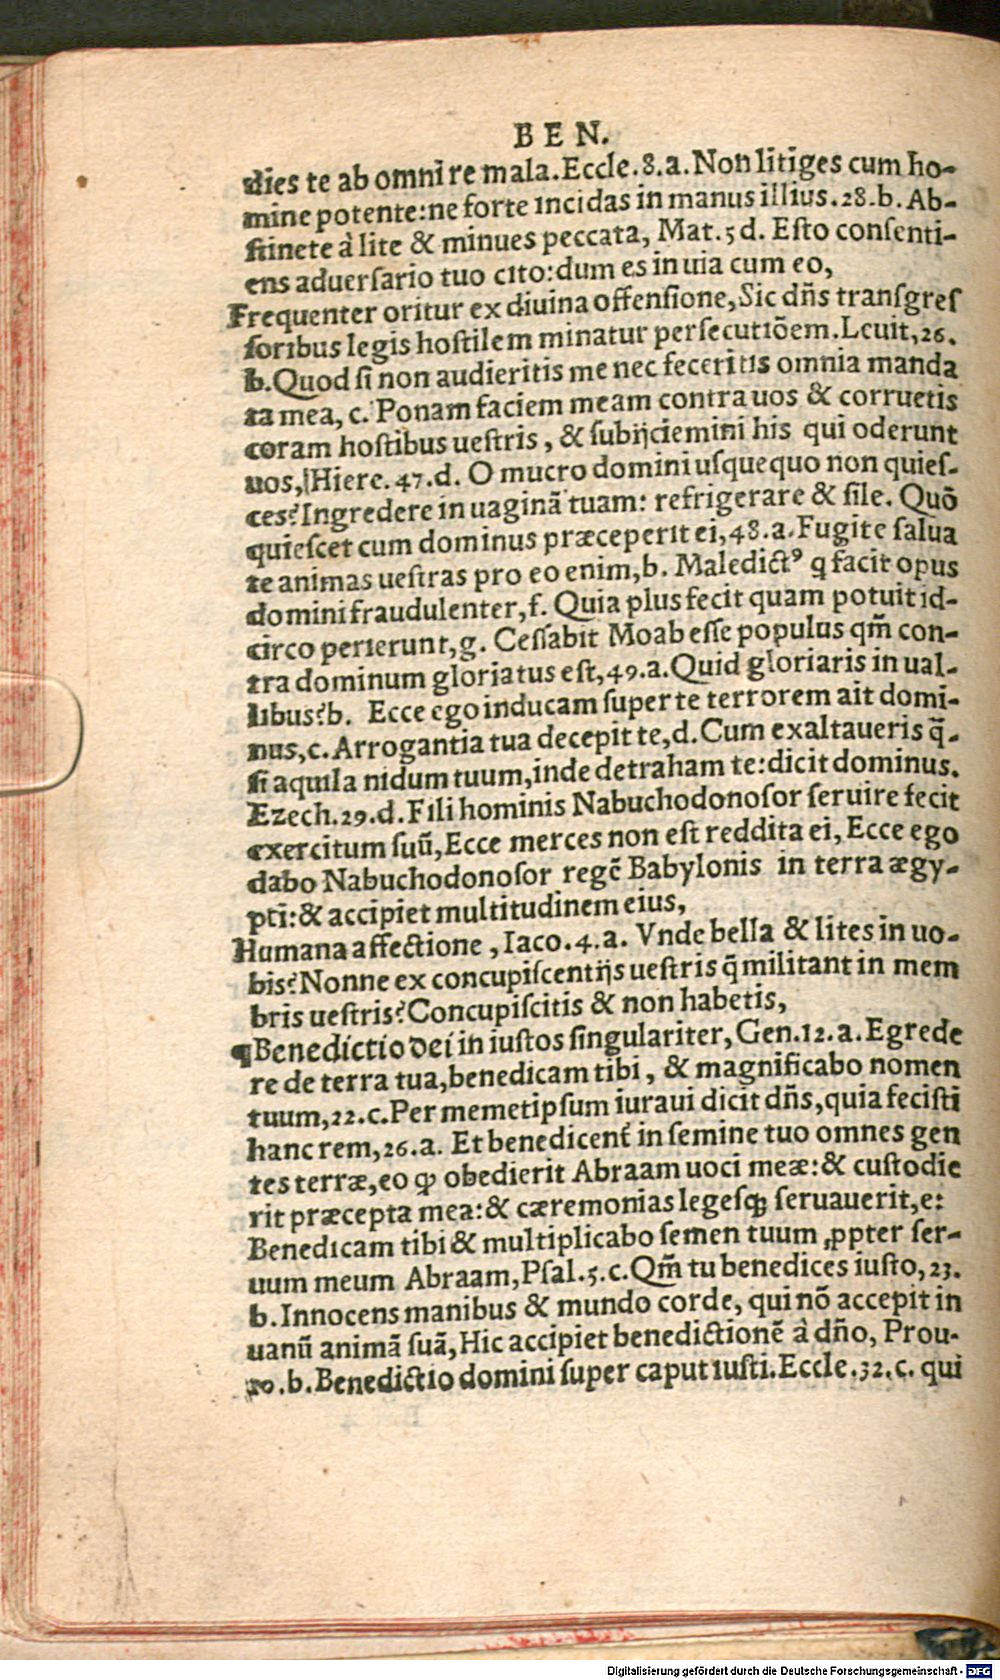 BEN.
dies te ab omni re mala. Eccle. 8. a. Non litiges cum ho-
mine potente: ne forte incidas in manus illius. 28. b. Ab-
ſtinete à lite & minues peccata, Mat. 5 d. Eſto conſenti-
ens aduerſario tuo cito: dum es in uia cum eo,
Frequenter oritur ex diuina offenſione, Sic dñs tranſgreſ
ſoribus legis hoſtilem minatur perſecutiõem. Leuit, 26.
b. Quod ſi non audieritis me nec feceritis omnia manda
ta mea, c. Ponam faciem meam contra uos & corruetis
coram hoſtibus ueſtris, & ſubijciemini his qui oderunt
uos, Hiere. 47. d. O mucro domini uſquequo non quieſ-
ces? Ingredere in uaginã tuam: refrigerare & ſile. Quõ
quieſcet cum dominus præceperit ei, 48. a. Fugite ſalua
te animas ueſtras pro eo enim, b. Maledictꝰ q facit opus
domini fraudulenter, f. Quia plus fecit quam potuit id-
circo perierunt, g. Ceſſabit Moab eſſe populus qm̃ con-
tra dominum gloriatus eſt, 49. a. Quid gloriaris in ual-
libus? b. Ecce ego inducam ſuper te terrorem ait domi-
nus, c. Arrogantia tua decepit te, d. Cum exaltaueris q̃-
ſi aquila nidum tuum, inde detraham te: dicit dominus.
Ezech. 29. d. Fili hominis Nabuchodonoſor ſeruire fecit
exercitum ſuũ, Ecce merces non eſt reddita ei, Ecce ego
dabo Nabuchodonoſor regẽ Babylonis in terra ægy-
pti: & accipiet multitudinem eius,
Humana affectione, Iaco. 4. a. Vnde bella & lites in uo-
bis? Nonne ex concupiſcentijs ueſtris q̃ militant in mem
bris ueſtris? Concupiſcitis & non habetis,
¶Benedictio dei in iuſtos ſingulariter, Gen. 12. a. Egrede
re de terra tua, benedicam tibi, & magnificabo nomen
tuum, 22. c. Per memetipſum iuraui dicit dñs, quia feciſti
hanc rem, 26. a. Et benedicent̃ in ſemine tuo omnes gen
tes terræ, eo ꝙ obedierit Abraam uoci meæ: & cuſtodie
rit præcepta mea: & cæremonias legeſqꝫ ſeruauerit, e:
Benedicam tibi & multiplicabo ſemen tuum ꝓpter ſer-
uum meum Abraam, Pſal. 5. c. Qm̃ tu benedices iuſto, 23.
b. Innocens manibus & mundo corde, qui nõ accepit in
uanũ animã ſuã, Hic accipiet benedictionẽ à dño, Prou-
10. b. Benedictio domini ſuper caput iuſti. Eccle. 32. c. qui
Digitalisierung gefördert durch die Deutsche Forschungsgemeinschaft - DFG